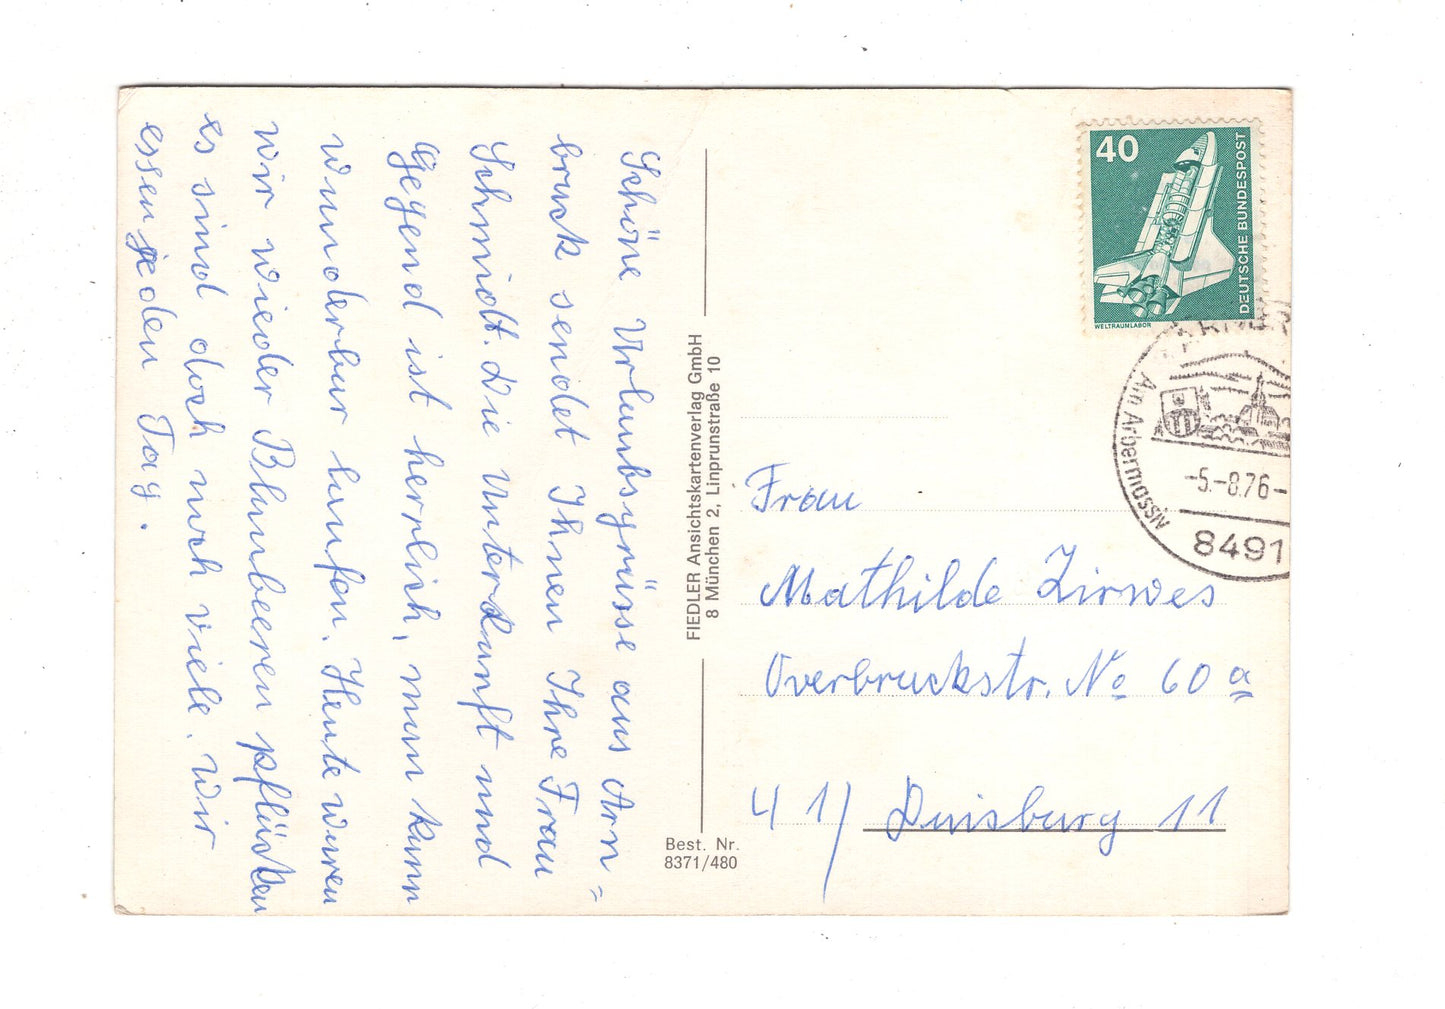 Schöne Urlaubsgrüsse aus Arn=
bruck sendet Ihnen Ihre Frau
Schmidt. Die Unterkunft und
Gegend ist herrlich, man kann
wunderbar laufen. Heute waren
wir wieder Blaubeeren pflücken
es sind doch noch viele. Wir
essen jeden Tag.
FIEDLER Ansichtskartenverlag GmbH
8 München 2, Linprunstraße 10
Best. Nr.
8371/480
40
DEUTSCHE BUNDESPOST
WELTRAUMLABOR
Am Arbermassiv
-5.-8.76-
8491
Frau
Mathilde Zirwes
Overbruckstr. No 60 a
41/ Duisburg 11